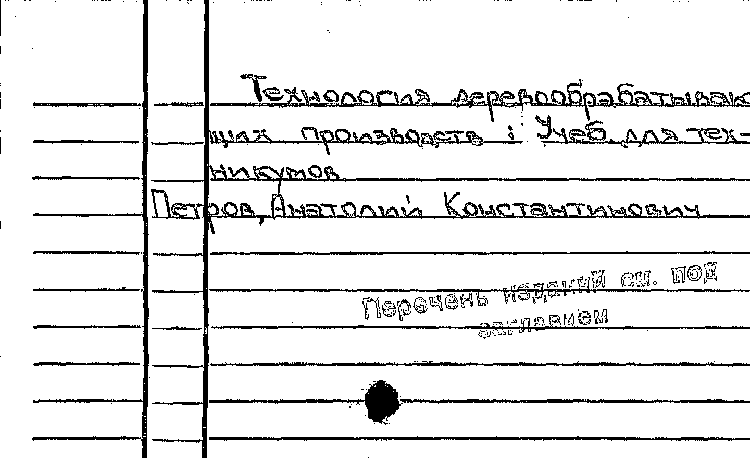 Технология деревообрабатываю
щих производств : Учеб. для тех-
никумов
Петров, Анатолий Константинович
Перечень изданий см. под
заглавием